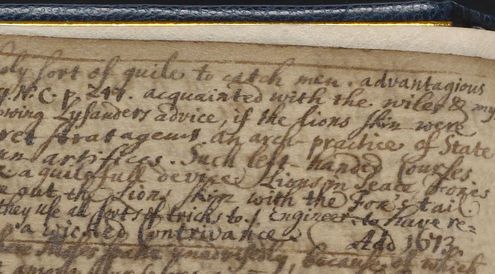 oly sort of guile to catch men. advantagious
N.C. p. 241. acquainted with the wiles & my
owing Lysanders advice, if the lions skin were
ret stratagems an arch-practice of State
un artifices. Such left handed courses.
e a guilefull device. Lions in peace foxes
e out the lions skin with the Fox's tail
they use all sorts of tricks to engineer. to have re-
o a wicked contrivance. Add 1613.
unadvisedly, because of which